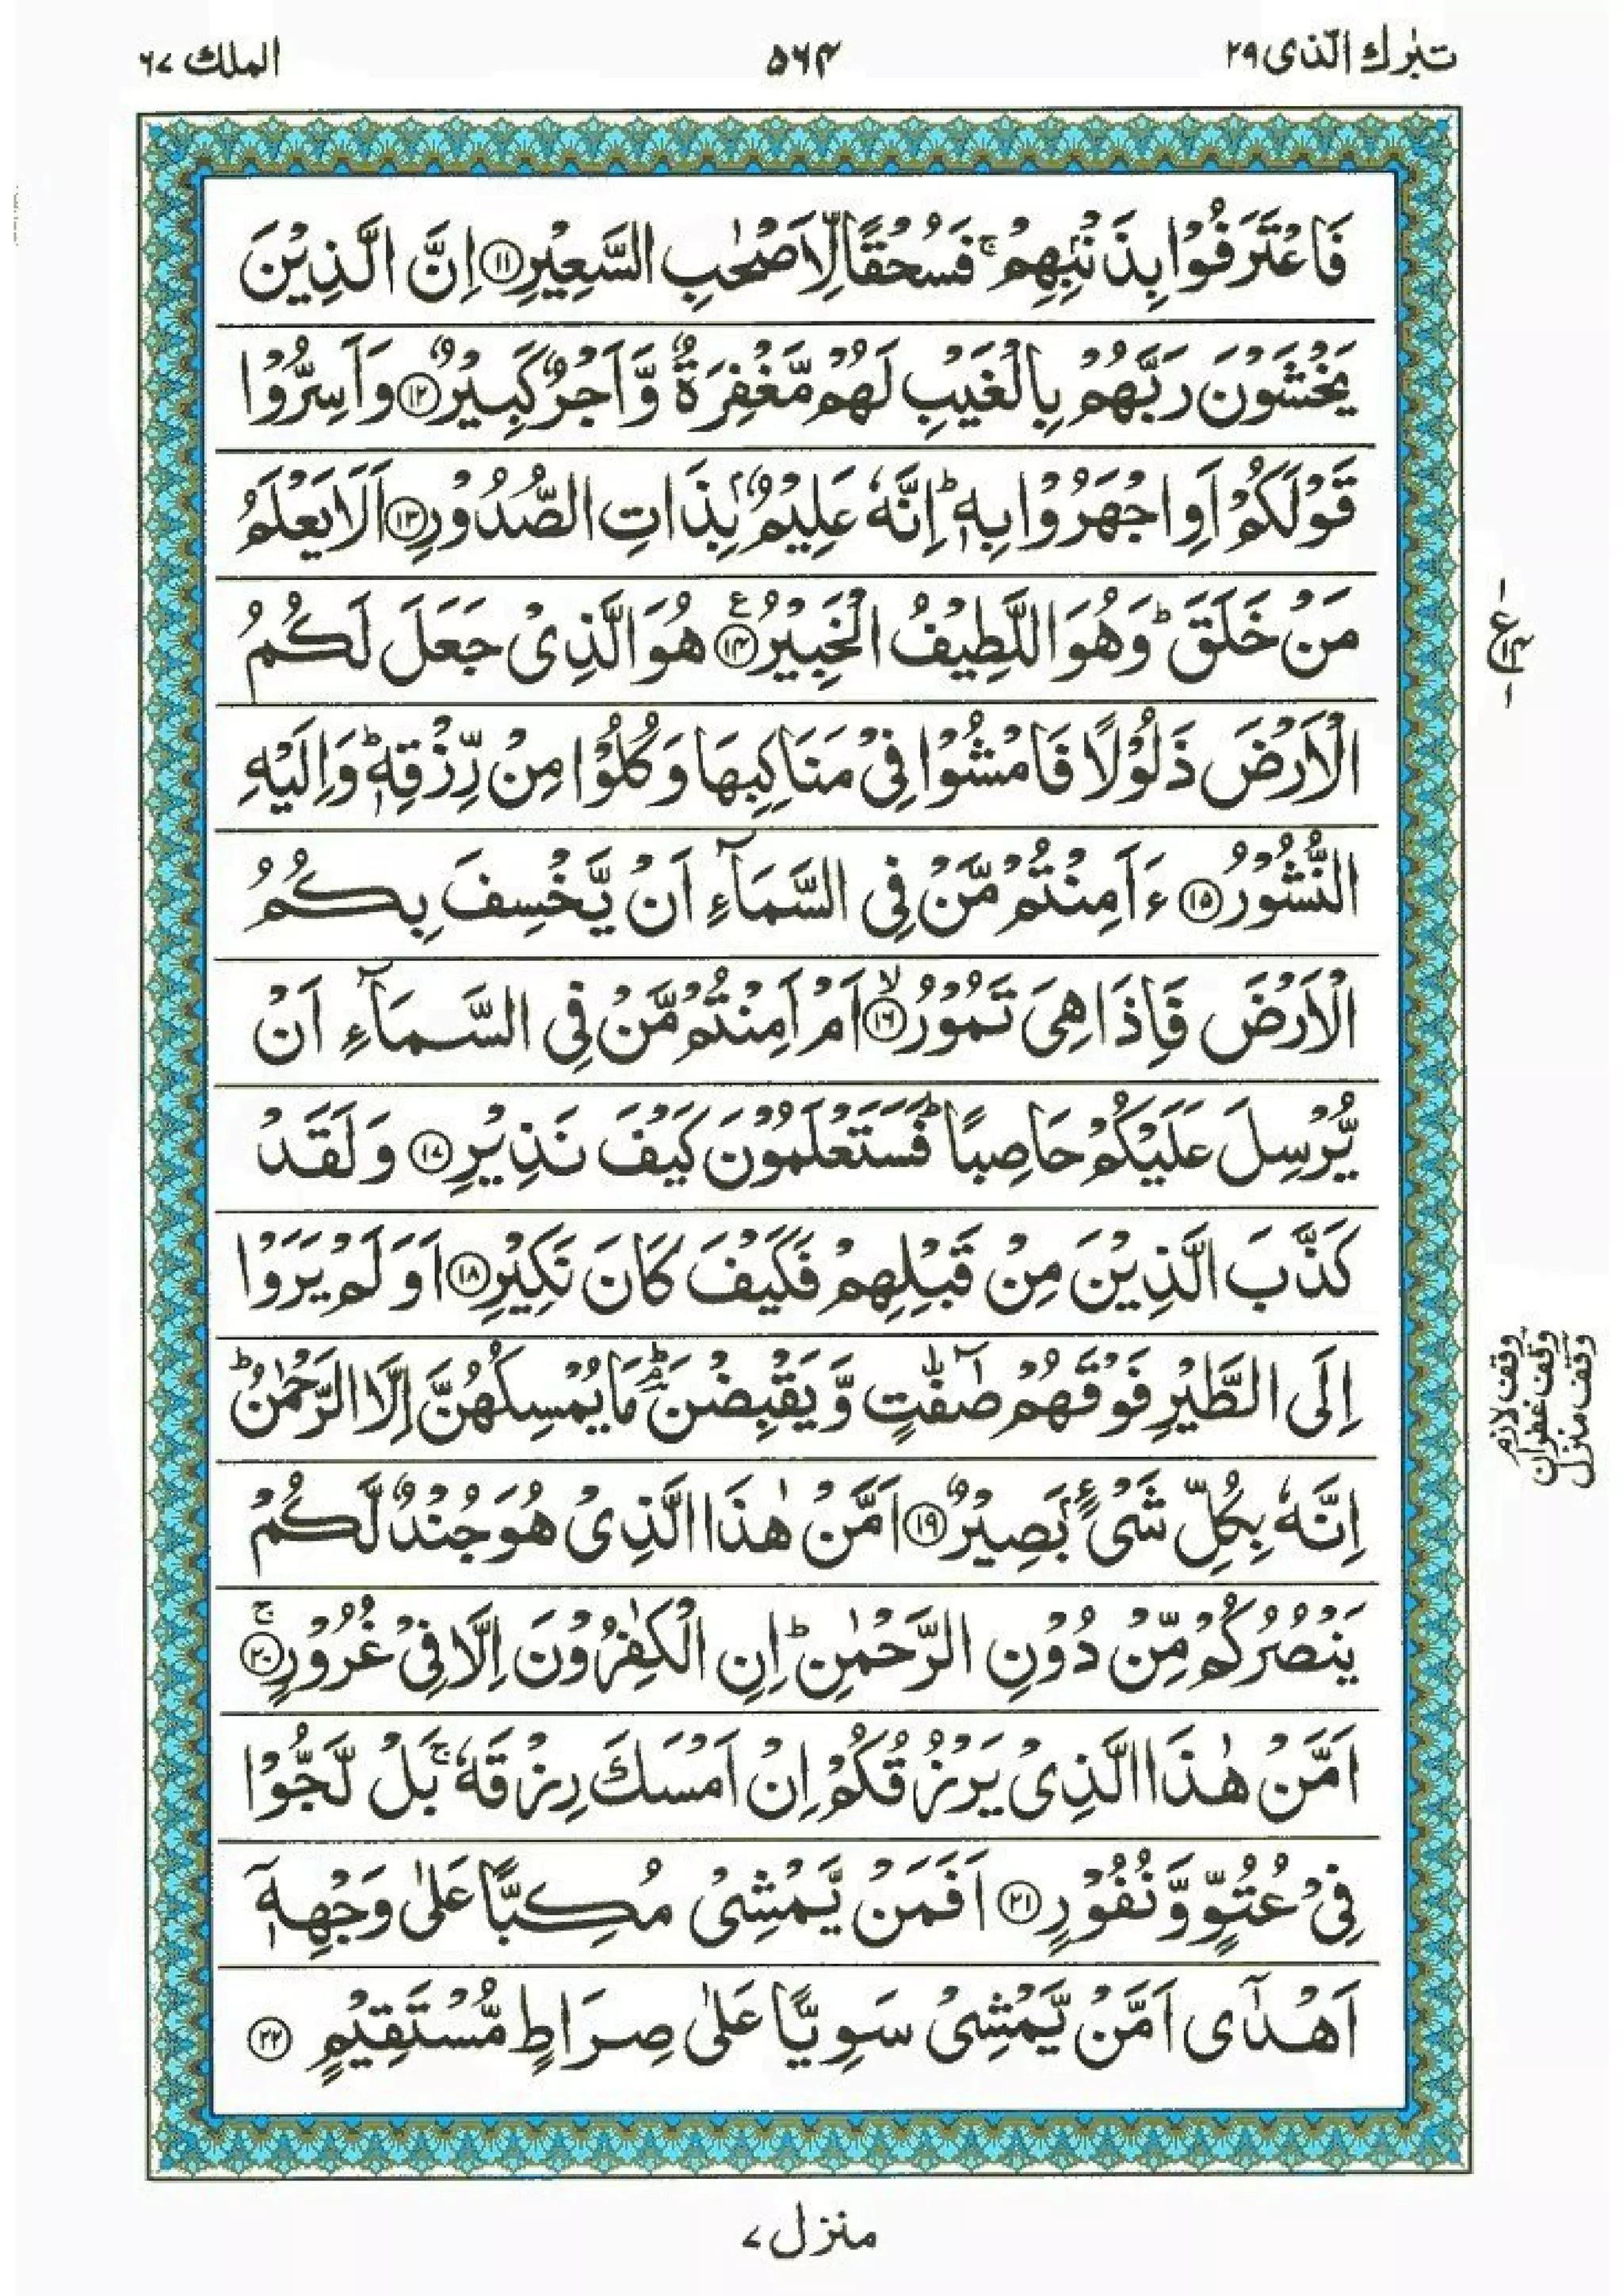 تبٰرك الّذى ٢٩
۵۶۴
الملك ٦٧
فَاعْتَرَفُوْا بِذَنْۢبِهِمْ ۚ فَسُحْقًا لِّاَصْحٰبِ السَّعِيْرِ ١١ اِنَّ الَّذِيْنَ
يَخْشَوْنَ رَبَّهُمْ بِالْغَيْبِ لَهُمْ مَّغْفِرَةٌ وَّاَجْرٌ كَبِيْرٌ ١٢ وَاَسِرُّوْا
قَوْلَكُمْ اَوِ اجْهَرُوْا بِهٖ ؕ اِنَّهٗ عَلِيْمٌۢ بِذَاتِ الصُّدُوْرِ ١٣ اَلَا يَعْلَمُ
مَنْ خَلَقَ ؕ وَهُوَ اللَّطِيْفُ الْخَبِيْرُ ١٤ ع هُوَ الَّذِىْ جَعَلَ لَكُمُ
الْاَرْضَ ذَلُوْلًا فَامْشُوْا فِىْ مَنَاكِبِهَا وَكُلُوْا مِنْ رِّزْقِهٖ ؕ وَاِلَيْهِ
النُّشُوْرُ ١٥ ءَاَمِنْتُمْ مَّنْ فِى السَّمَآءِ اَنْ يَّخْسِفَ بِكُمُ
الْاَرْضَ فَاِذَا هِىَ تَمُوْرُ ۙ ١٦ اَمْ اَمِنْتُمْ مَّنْ فِى السَّمَآءِ اَنْ
يُّرْسِلَ عَلَيْكُمْ حَاصِبًا ؕ فَسَتَعْلَمُوْنَ كَيْفَ نَذِيْرِ ١٧ وَلَقَدْ
كَذَّبَ الَّذِيْنَ مِنْ قَبْلِهِمْ فَكَيْفَ كَانَ نَكِيْرِ ١٨ اَوَلَمْ يَرَوْا
اِلَى الطَّيْرِ فَوْقَهُمْ صٰٓفّٰتٍ وَّيَقْبِضْنَ ؕۘ مَا يُمْسِكُهُنَّ اِلَّا الرَّحْمٰنُ ؕ
اِنَّهٗ بِكُلِّ شَىْءٍۢ بَصِيْرٌ ١٩ اَمَّنْ هٰذَا الَّذِىْ هُوَ جُنْدٌ لَّكُمْ
يَنْصُرُكُمْ مِّنْ دُوْنِ الرَّحْمٰنِ ؕ اِنِ الْكٰفِرُوْنَ اِلَّا فِىْ غُرُوْرٍ ۚ ٢٠
اَمَّنْ هٰذَا الَّذِىْ يَرْزُقُكُمْ اِنْ اَمْسَكَ رِزْقَهٗ ۚ بَلْ لَّجُّوْا
فِىْ عُتُوٍّ وَّنُفُوْرٍ ٢١ اَفَمَنْ يَّمْشِىْ مُكِبًّا عَلٰى وَجْهِهٖٓ
اَهْدٰٓى اَمَّنْ يَّمْشِىْ سَوِيًّا عَلٰى صِرَاطٍ مُّسْتَقِيْمٍ ٢٢
١ ع ١٤ ١
وقف لازم
وقف غفران
وقف منزل
منزل ٧